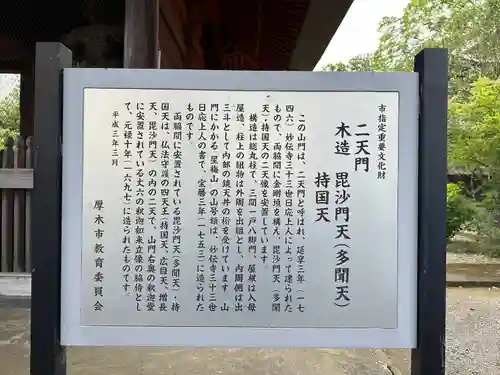 市指定重要文化財
二天門
木造 毘沙門天(多聞天)
持国天
この山門は、二天門と呼ばれ、延享三年(一七
四六)妙伝寺三十三世日応上人によって建られた
もので、両脇間に金剛垣を構え、毘沙門天(多聞
天)持国天の二天像を安置しています。
構造は総丸柱で、三間一戸八脚門、屋根は入母
屋造、柱上の組物は外周を出組とし、内周側は出
三斗として内部の鏡天井の桁を受けています。山
門にかかる「星梅山」の山号額は、妙伝寺三十三世
日応上人の書で、宝暦三年(一七五三)に造られた
ものです。
両脇間に安置されている毘沙門天(多聞天)・持
国天は、仏法守護の四天王(持国天、広目天、増長
天、毘沙門天)の内の二天で、山門右奥の釈迦堂
に安置されている丈六の釈迦如来立像の脇侍とし
て、元禄十年(一六九七)に造られたものです。
平成三年三月
厚木市教育委員会